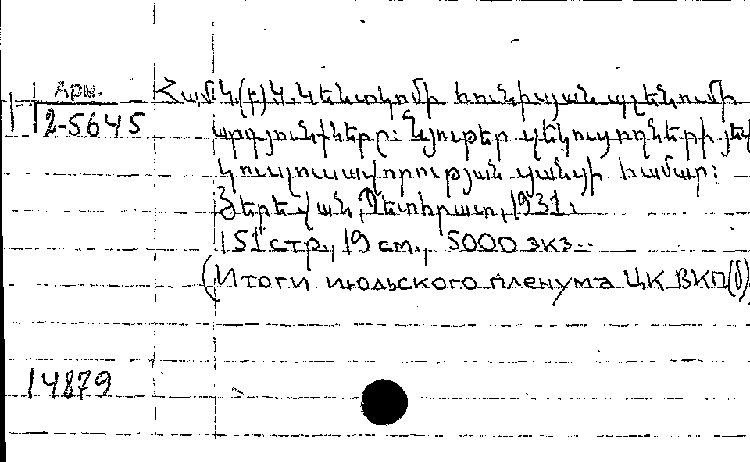 Арм.
2-5645
Համ Կ.(բ)Կ. Կենտկոմի հունիսյան պլենումի
արդյունքները: Նյութեր զեկուցողների յեվ
կուսլուսավորության ցանցի համար:
Յերեվան, Պետհրատ, 1931.
151 стр., 19 см., 5000 экз.
(Итоги июльского пленума ЦК ВКП(б)
14879